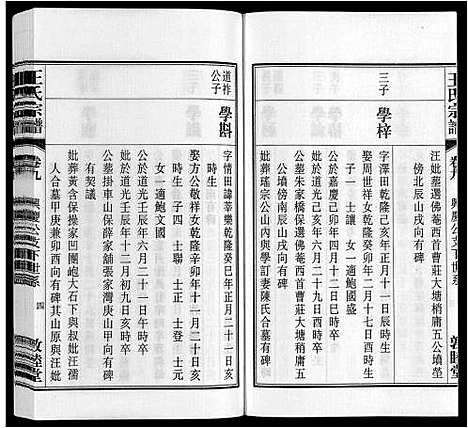 王氏宗譜
卷九
興慶公支下世系
敦睦堂
汪妣墓選佛菴西首曹莊大塘稍庸五公墳塋
傍北辰山戌向有碑
三子
學梓
字澤田乾隆己亥年正月十一日辰時生
娶周世祥女乾隆癸卯年二月十七日酉時生
子一 士讓 女一適鮑國盛
公於嘉慶己卯年六月二十二日巳時卒
妣於道光己亥年六月二十九日酉時卒
公墓朱家橋保選佛菴西首曹莊大塘稍庸五
公墳傍南辰山戌向有碑
妣葬瑤宗公山內與學訂妻陳氏合墓有碑
道祚公子
學斟
字情田諱莘樂乾隆癸巳年正月二十二日亥
時生
娶方公敬祥女乾隆辛卯年十一月二十日亥
時生 子四 士聯 士正 士登 士元
女一適鮑文國
公於道光辛丑年六月二十一日午時卒
妣於道光壬辰年十二月初九日亥時卒
公墓掛車山保薛家舖張家灣庚山甲向有碑
有契議
妣葬黃貝含保操家凹團峴大石下與叔妣汪濡
人合墓甲庚兼卯酉向有碑其山原與汪妣
王氏宗譜
卷九
興慶公支下世系
四
敦睦堂